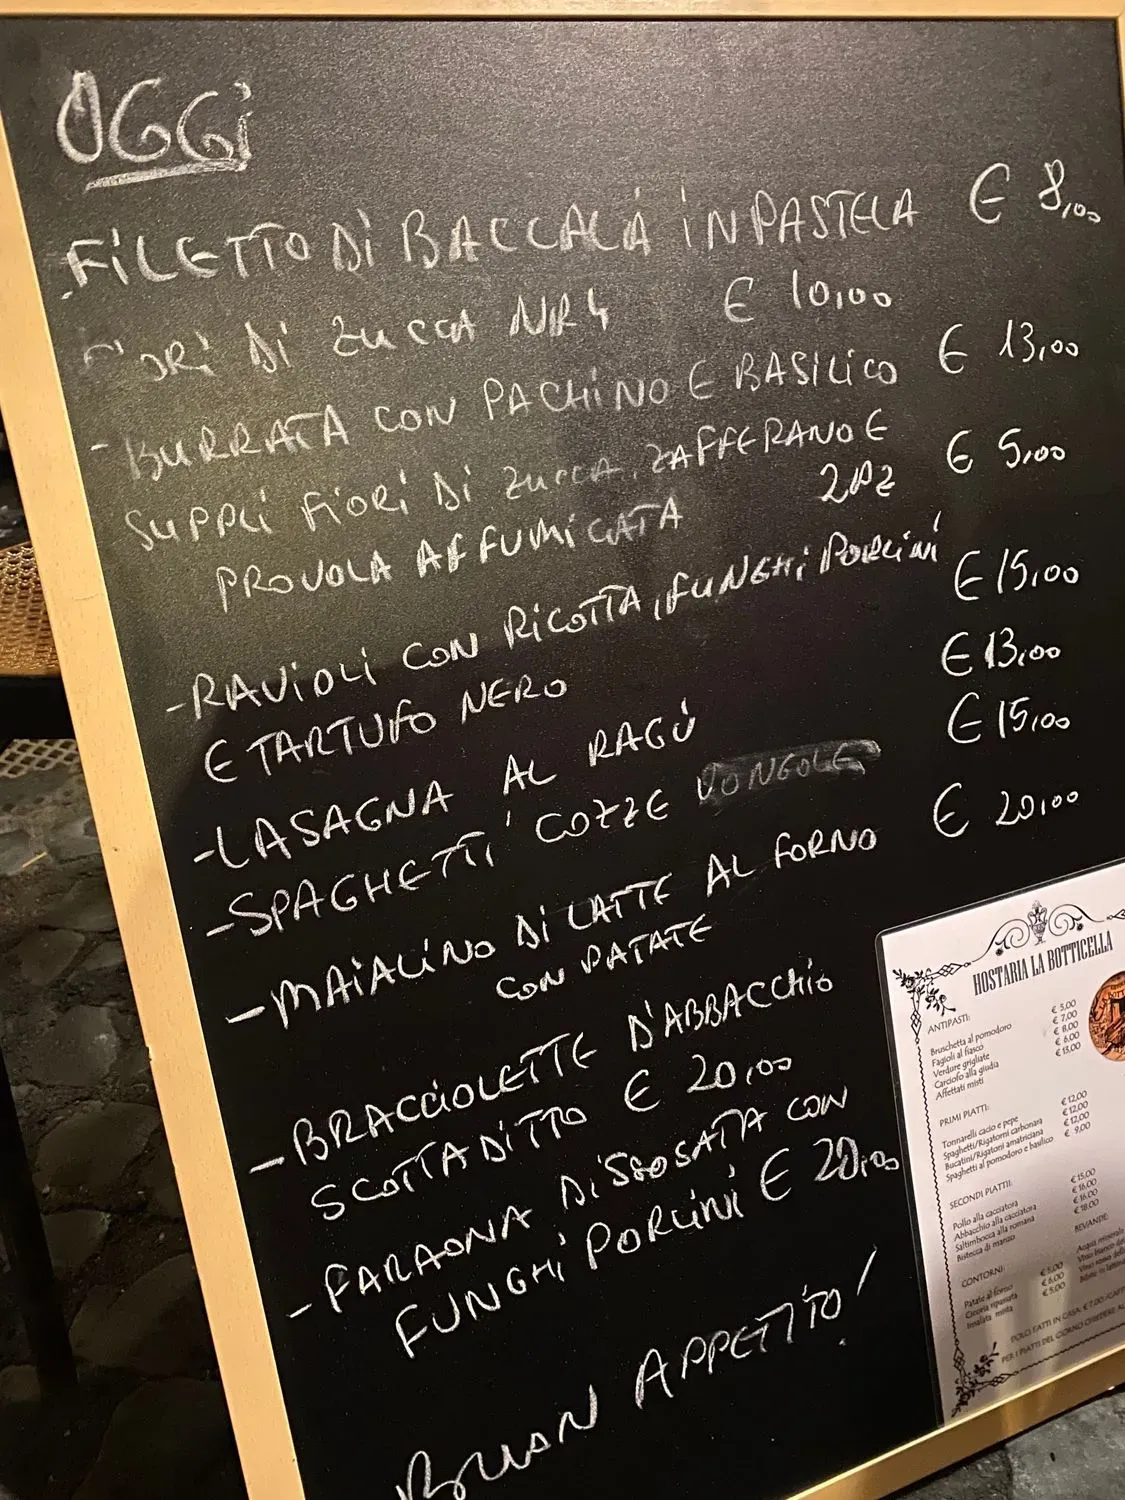 OGGi
- FiLETTO Di BACCALÀ iN PASTELA € 8,00
FiORi Di ZUCCA NR 4 € 10,00
- BURRATA CON PACHiNO E BASiLiCO € 13,00
SUPPLi FiORi Di ZUCCA, ZAFFERANO E
PROVOLA AFFUMiCATA 2PZ € 5,00
- RAViOLi CON RiCOTTA, FUNGHi PORCiNi
E TARTUFO NERO € 15,00
- LASAGNA AL RAGÙ € 13,00
- SPAGHETTi COZZE VONGOLE € 15,00
- MAiALiNO Di LATTE AL FORNO € 20,00
CON PATATE
- BRACCiOLETTE D'ABBACCHiO
SCOTTADiTTO € 20,00
- FARAONA DiSSOSATA CON
FUNGHi PORCiNi € 20,00
BUON APPETTiTO!
HOSTARIA LA BOTTICELLA
ANTIPASTI:
Bruschetta al pomodoro € 5,00
Fagioli al fiasco € 7,00
Verdure grigliate € 8,00
Carciofo alla giudia € 6,00
Affettati misti € 13,00
PRIMI PIATTI:
Tonnarelli cacio e pepe € 12,00
Spaghetti/Rigatoni carbonara € 12,00
Bucatini/Rigatoni amatriciana € 12,00
Spaghetti al pomodoro e basilico € 9,00
SECONDI PIATTI:
Pollo alla cacciatora € 15,00
Abbacchio alla cacciatora € 16,00
Saltimbocca alla romana € 16,00
Bistecca di manzo € 18,00
CONTORNI:
Patate al forno € 5,00
Cicoria ripassata € 6,00
Insalata mista € 5,00
BEVANDE:
Acqua minerale
Vino bianco
Vino rosso
Bibite in lattina
DOLCI FATTI IN CASA: € 7,00
PER I PIATTI DEL GIORNO CHIEDERE AL